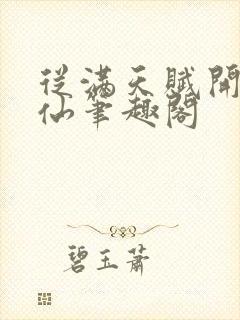 從滿天賦開
仙筆趣閣
碧玉蕭